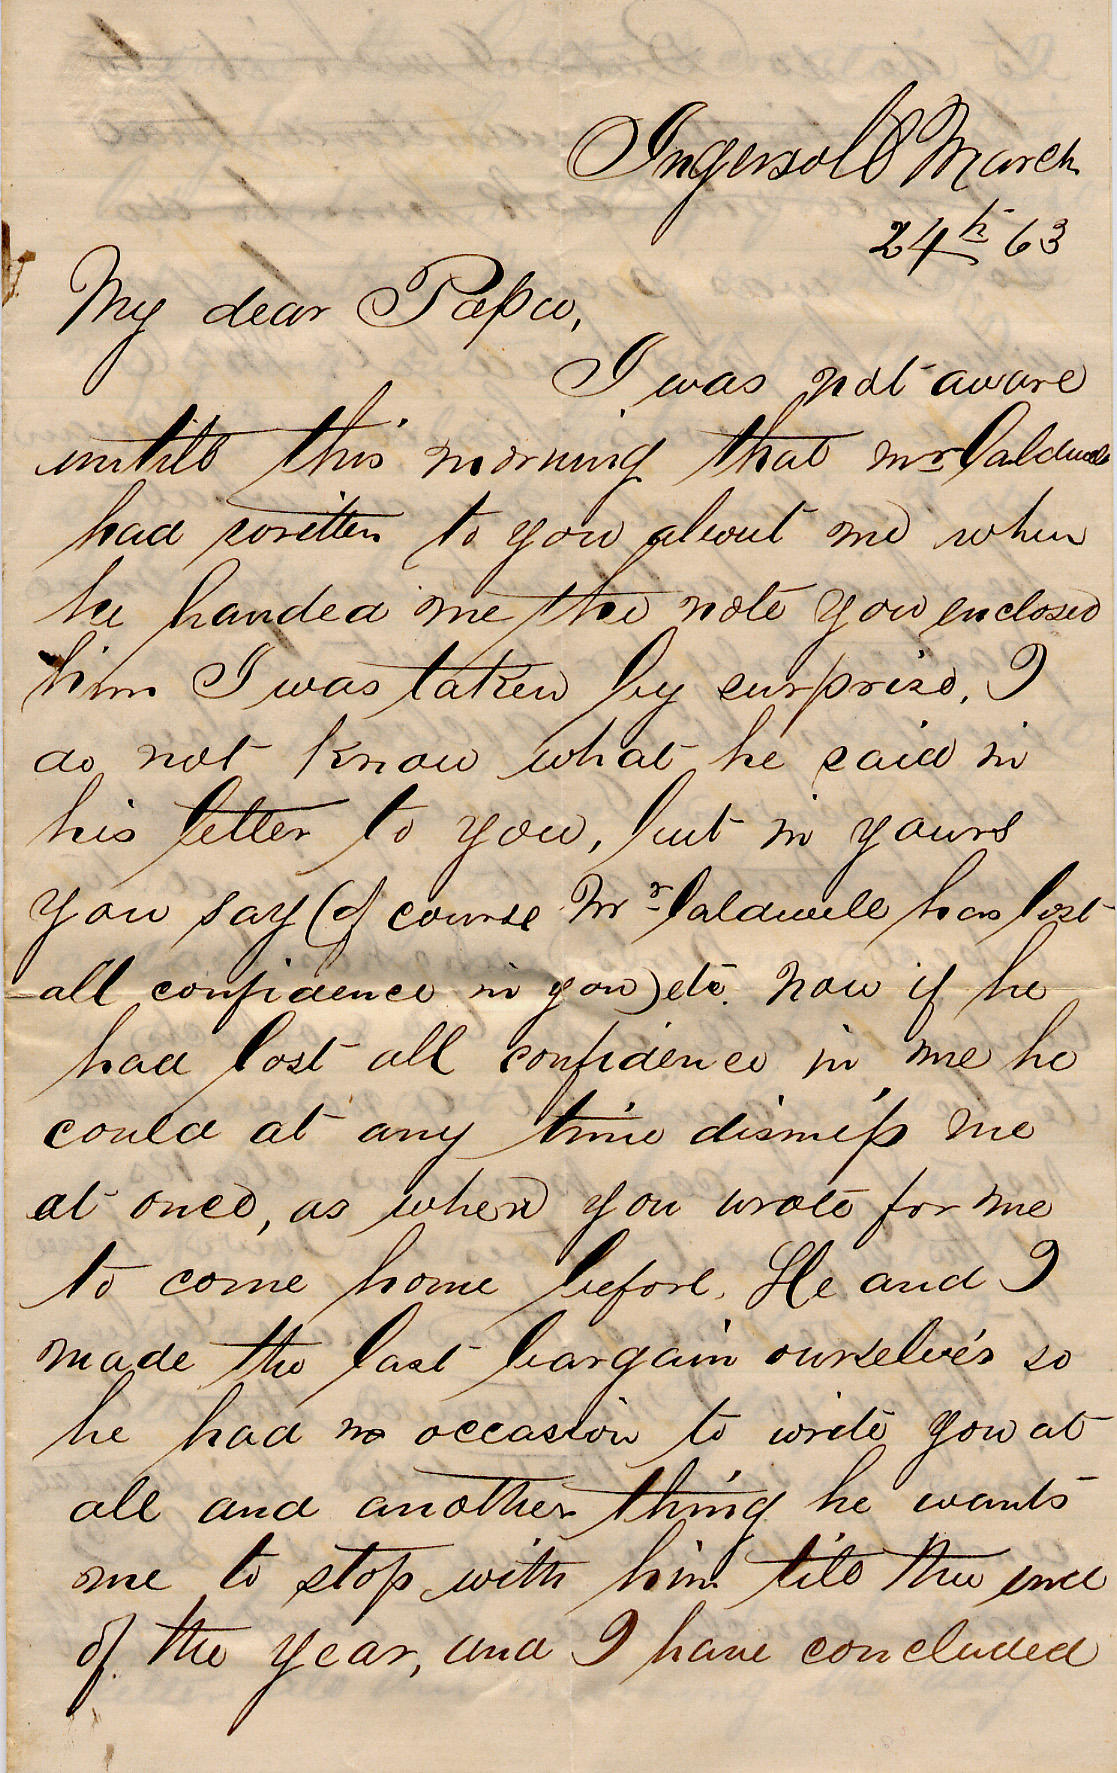 Ingersoll March
24th 63
My dear Papa,
I was not aware
untill this morning that Mr Caldwell
had written to you about me when
he handed me the note you enclosed
him I was taken by surprise, I
do not know what he said in
his letter to you, but in yours
you say (of course Mr Caldwell has lost
all confidence in you) etc. Now if he
had lost all confidence in me he
could at any time dismiss me
at once, as when you wrote for me
to come home before. He and I
made the last bargain ourselves so
he had no occasion to write you at
all and another thing he wants
me to stop with him till the end
of the year, and I have concluded